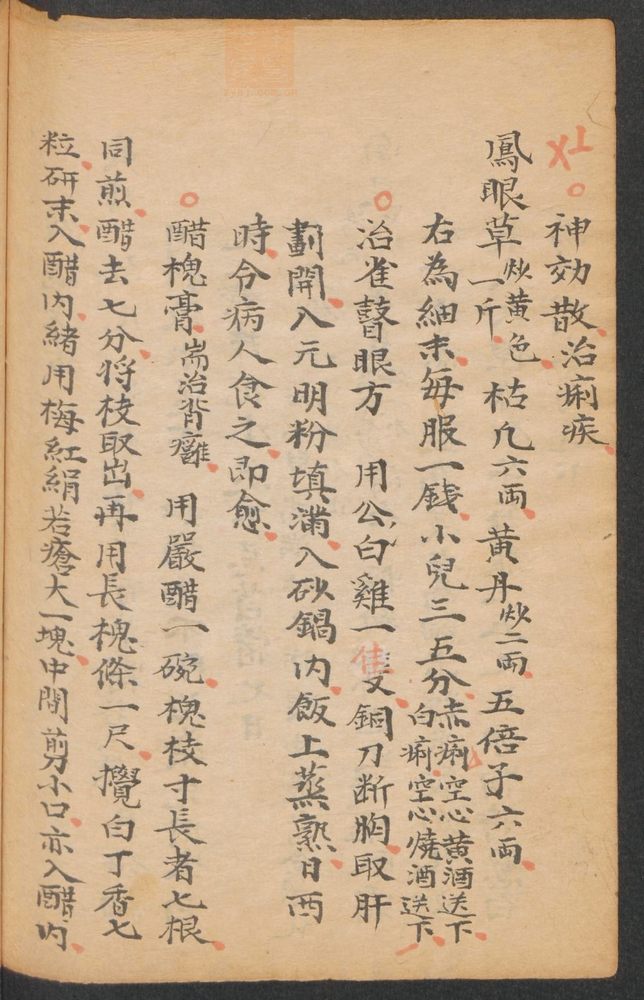 神効散治痢疾
鳳眼草一斤炒黄色 枯凡六両 黄丹炒二両 五倍子六両
右為細末每服一錢小兒三五分赤痢空心黄酒送下白痢空心燒酒送下
治雀瞽眼方 用公白雞一隻銅刀断胸取肝
劃開入元明粉填滿入砂鍋内飯上蒸熟日西
時令病人食之即愈
醋槐膏耑治背癰 用嚴醋一碗槐枝寸長者七根
同煎醋去七分将枝取出再用長槐條一尺攪白丁香七
粒研末入醋内緒用梅紅絹若瘡大一塊中間剪小口亦入醋内